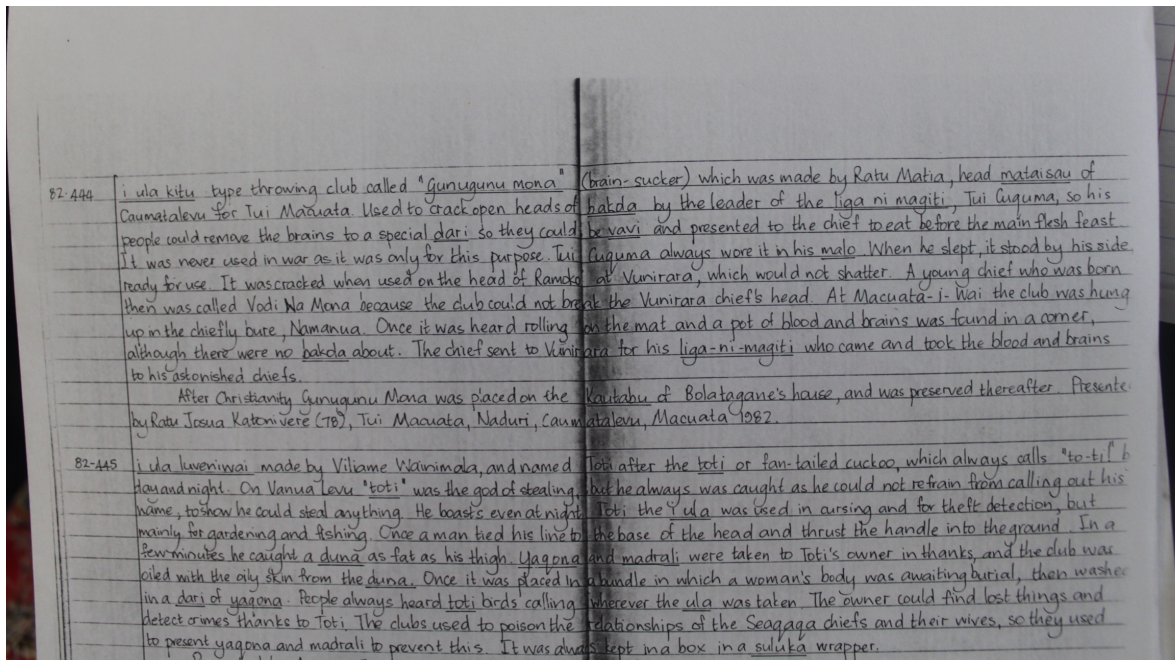 82-444 i ula kitu type throwing club called "Gunugunu mona" (brain-sucker) which was made by Ratu Matia, head mataisau of
Caumatalevu for Tui Macuata. Used to crack open heads of bakola by the leader of the liga ni magiti, Tui Cuguma, so his
people could remove the brains to a special dari so they could be vavi and presented to the chief to eat before the main flesh feast
It was never used in war as it was only for this purpose. Tui Cuguma always wore it in his malo. When he slept, it stood by his side
ready for use. It was cracked when used on the head of Ramoko at Vunirara, which would not shatter. A young chief who was born
then was called Vodi Na Mona because the club could not break the Vunirara chief's head. At Macuata-i-Wai the club was hung
up in the chiefly bure, Namanua. Once it was heard rolling on the mat and a pot of blood and brains was found in a corner,
although there were no bakola about. The chief sent to Vunirara for his liga-ni-magiti who came and took the blood and brains
to his astonished chiefs.
After Christianity Gunugunu Mona was placed on the Kautabu of Bolatagane's house, and was preserved thereafter. Presente
by Ratu Josua Katonivere (78), Tui Macuata, Naduri, Caumatalevu, Macuata 1982.
82-445 i ula luveniwai made by Viliame Wainimala, and named Toti after the toti or fan-tailed cuckoo, which always calls "to-ti" b
day and night. On Vanua Levu "toti" was the god of stealing, but he always was caught as he could not refrain from calling out his
name, to show he could steal anything. He boasts even at night. Toti the i ula was used in cursing and for theft detection, but
mainly for gardening and fishing. Once a man tied his line to the base of the head and thrust the handle into the ground. In a
few minutes he caught a duna as fat as his thigh. Yaqona and madrali were taken to Toti's owner in thanks, and the club was
oiled with the oily skin from the duna. Once it was placed in a bundle in which a woman's body was awaiting burial, then washed
in a dari of yaqona. People always heard toti birds calling wherever the ula was taken. The owner could find lost things and
detect crimes thanks to Toti. The clubs used to poison the relationships of the Seaqaqa chiefs and their wives, so they used
to present yaqona and madrali to prevent this. It was always kept in a box in a suluka wrapper.